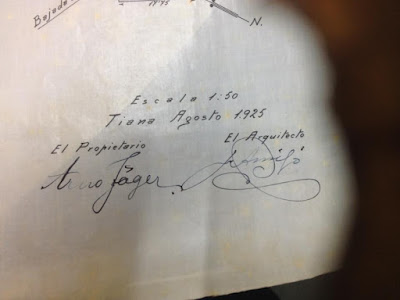 Bajada
N.
Escala 1:50
Tiana Agosto 1925
El Propietario
El Arquitecto
Arno Jäger.